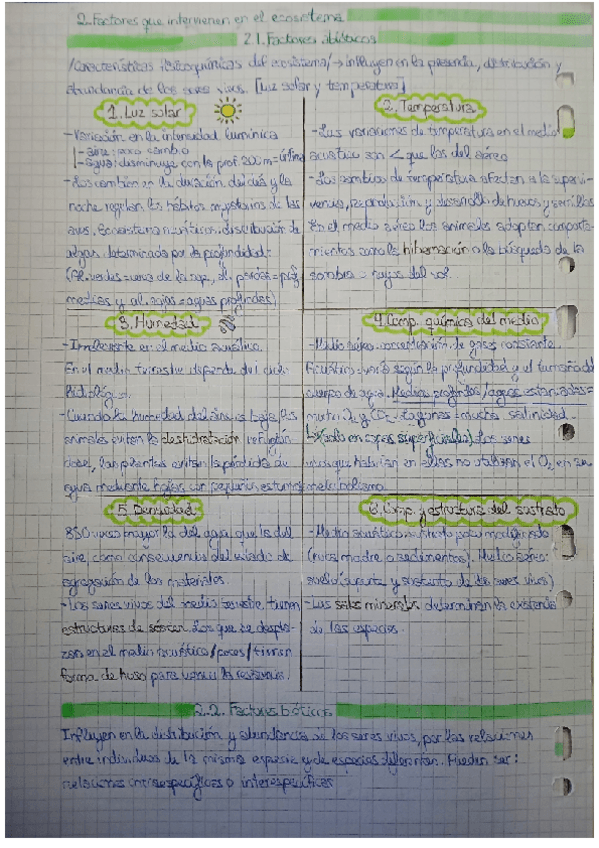 2. Factores que intervienen en el ecosistema
2.1. Factores abióticos
/Características fisicoquímicas del ecosistema/→ influyen en la presencia, distribución y
abundancia de los seres vivos. [Luz solar y temperatura]
1. Luz solar
- Variación en la intensidad lumínica
- aire: poco cambio
- agua: disminuye con la prof. 200 m =
- Los cambios en la duración del día y la
noche regulan los hábitos migratorios de las
aves. Ecosistema distribución de
algas determinada por la profundidad:
(Al. verdes = cerca de la sup, al. pardas = prof
medias y al. rojas = aguas profundas)
2. Temperatura
- Las variaciones de temperatura en el medio
acuático son < que las del aéreo
- Los cambios de temperatura afectan a la supervi-
vencia, reproducción y desarrollo de huevos y semillas
En el medio aéreo los animales adoptan comporta-
mientos como la hibernación o la búsqueda de la
sombra = rayos del sol
3. Humedad
- Irrelevante en el medio acuático.
En el medio terrestre depende del
- Cuando la humedad del aire es baja, los
animales evitan la deshidratación refugián
dose, las plantas evitan la pérdida de
agua mediante hojas con
4. Comp. química del medio
- Medio aéreo: concentración de gases constante.
Acuático: varía según la profundidad y el tamaño del
cuerpo de agua. Medios profundos/aguas estancadas =
CO₂. Lagunas = mucha salinidad.
(sólo en capas superficiales) Los seres
vivos que habitan en ellas no utilizan el O₂ en su
metabolismo.
5. Densidad
850 veces mayor la del agua que la del
aire como consecuencia del estado de
agregación de los materiales.
- Los seres vivos del medio terrestre tienen
estructuras de sostén. Los que se despla-
zan en el medio acuático/peces/tienen
forma de huso para vencer la resistencia.
6. Comp. y estructura del sustrato
- Medio acuático: sustrato poco modificado
(roca madre o sedimentos). Medio aéreo:
suelo (soporte y sustento de los seres vivos)
- Las sales minerales determinan la existencia
de las especies.
2.2. Factores bióticos
Influyen en la distribución y abundancia de los seres vivos, por las relaciones
entre individuos de la misma especie y de especies diferentes. Pueden ser:
relaciones intraespecíficas o interespecíficas